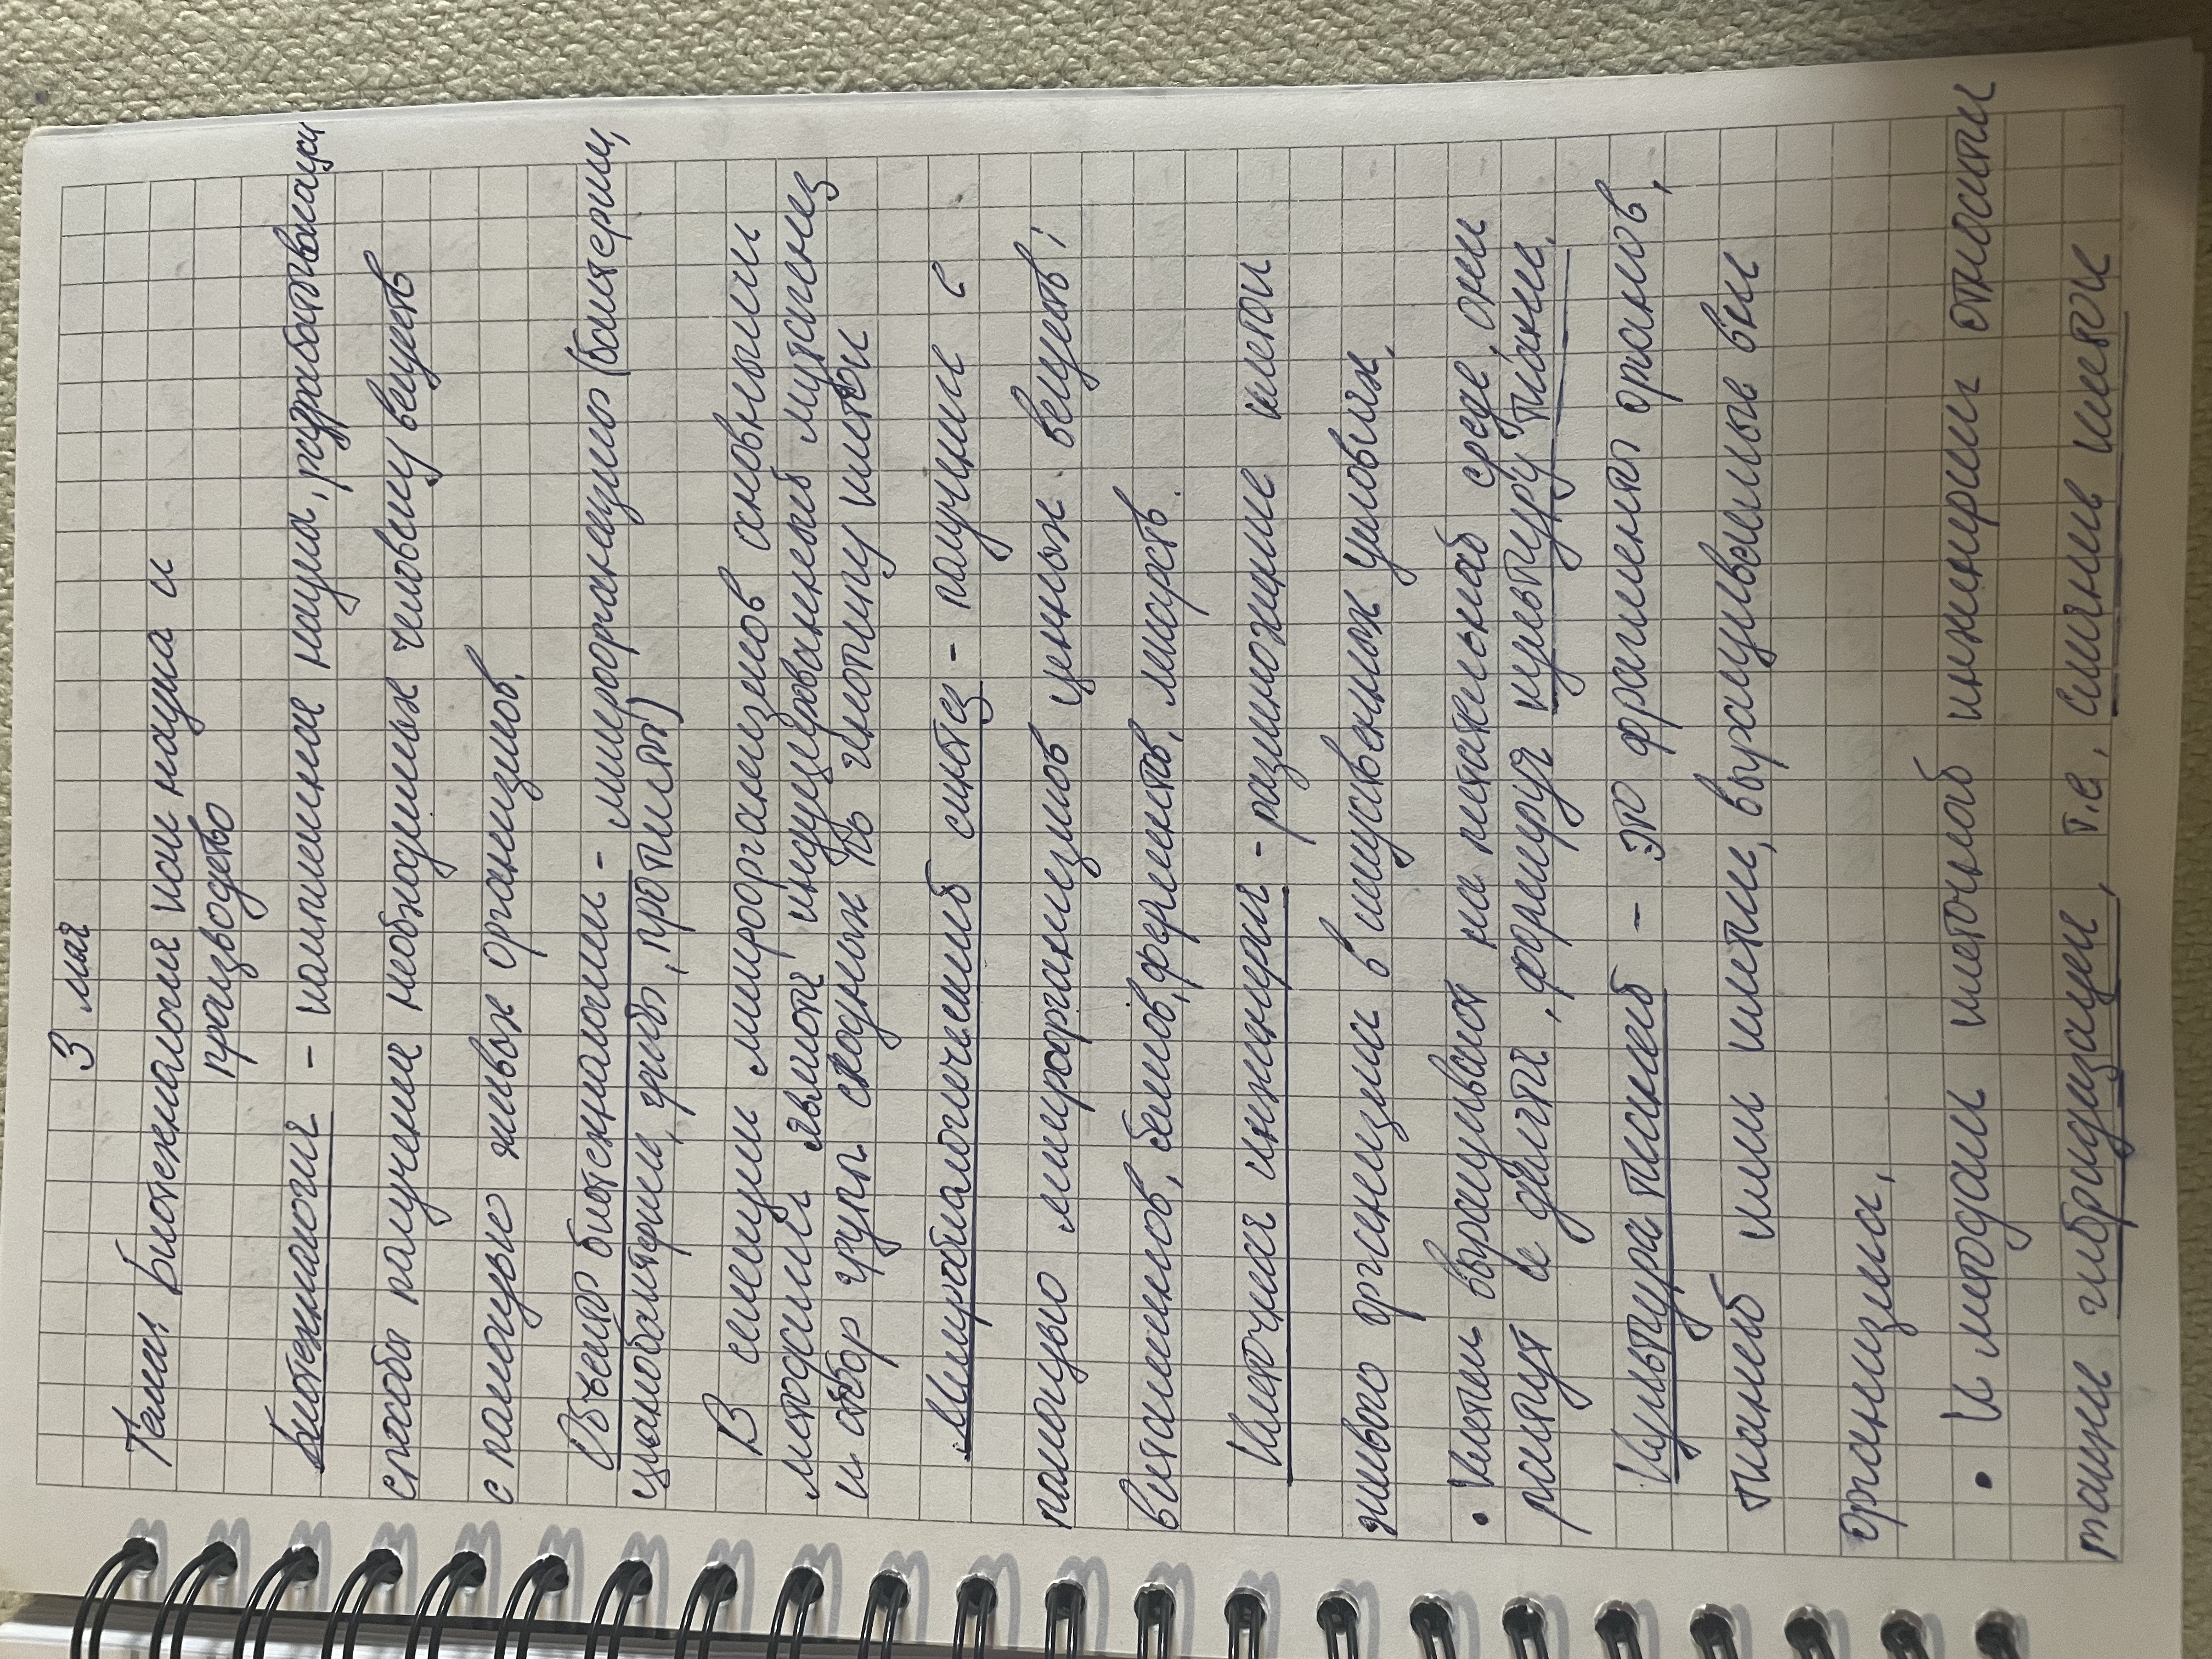 3 мая
Тема: Биотехнология как наука и
производство
Биотехнология - комплексная наука, разрабатывающ
способы получения необходимых человеку веществ
с помощью живых организмов.
Объекты биотехнологии - микроорганизмы (бактерии,
цианобактерии, грибы, протисты)
В секции микроорганизмов основными
методами являются индуцированный мутагенез
и отбор групп сходных по генотипу клеток
Микробиологический синтез - получение с
помощью микроорганизмов ценных веществ:
витаминов, белков, ферментов, лекарств.
Клеточная инженерия - размножение клетки
живого организма в искусственных условиях.
• Клетки выращивают на питательной среде, они
растут и делятся, формируя культуру ткани.
Культура тканей - это фрагменты органов,
тканей или клетки, выращиваемые вне
организма.
• К методам клеточной инженерии относят
также гибридизации, т.е. слияние клеток